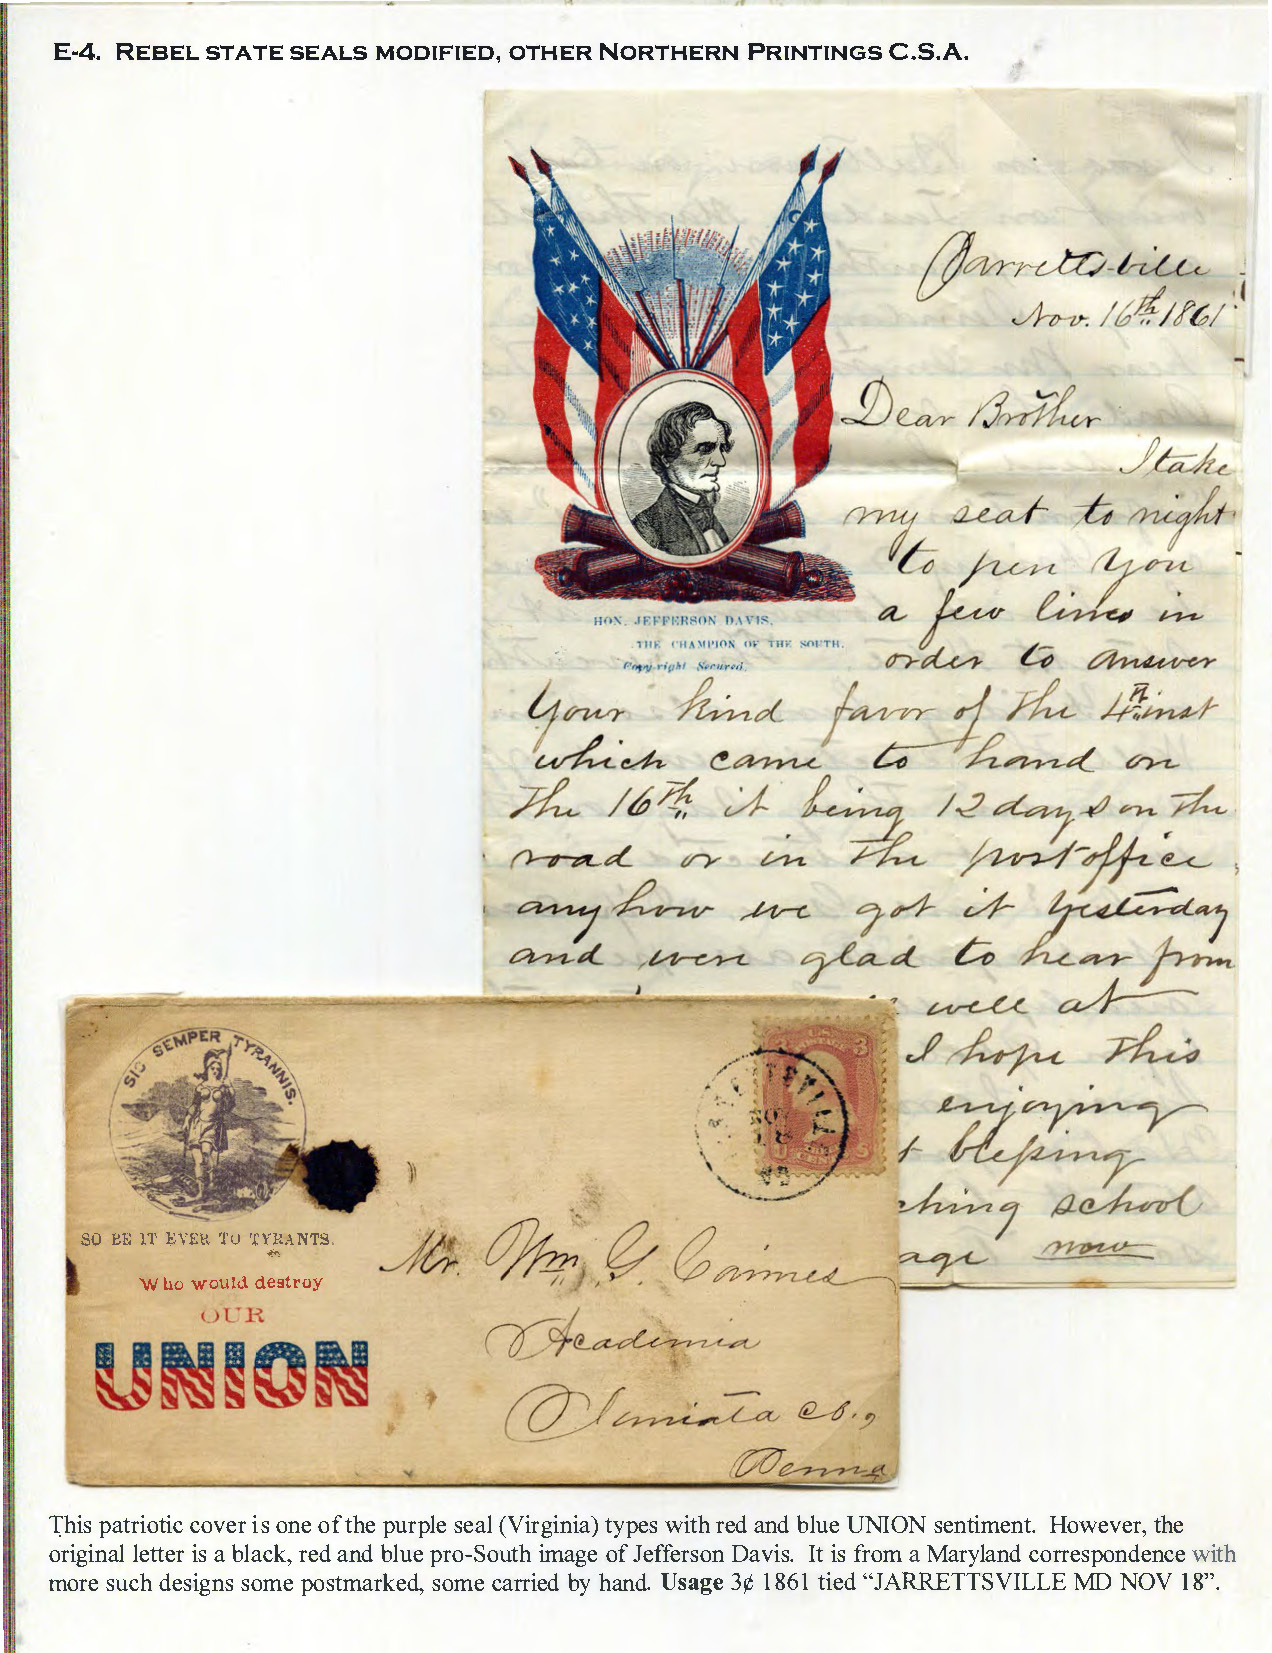 E-4. REBEL STATE SEALS MODIFIED, OTHER NORTHERN PRINTINGS C.S.A.
Jarrettsville
Nov. 16th 1861
Dear Brother
I take
my seat to night
to pen you
a few lines in
order to answer
HON. JEFFERSON DAVIS,
THE CHAMPION OF THE SOUTH.
Copyright Secured.
your kind favor of the 4th inst
which came to hand on
the 16th it being 12 days on the
road or in the post office
anyhow we got it yesterday
and were glad to hear from
well at
I hope this
enjoying
t blessing
ching school
age now
SIC SEMPER TYRANNIS.
SO BE IT EVER TO TYRANTS.
Who would destroy
OUR
UNION
U.S. POSTAGE
3 3
Mr. Wm. G. Cairnes
Academia
Juniata Co.,
Penna
This patriotic cover is one of the purple seal (Virginia) types with red and blue UNION sentiment. However, the
original letter is a black, red and blue pro-South image of Jefferson Davis. It is from a Maryland correspondence with
more such designs some postmarked, some carried by hand. Usage 3¢ 1861 tied “JARRETTSVILLE MD NOV 18”.